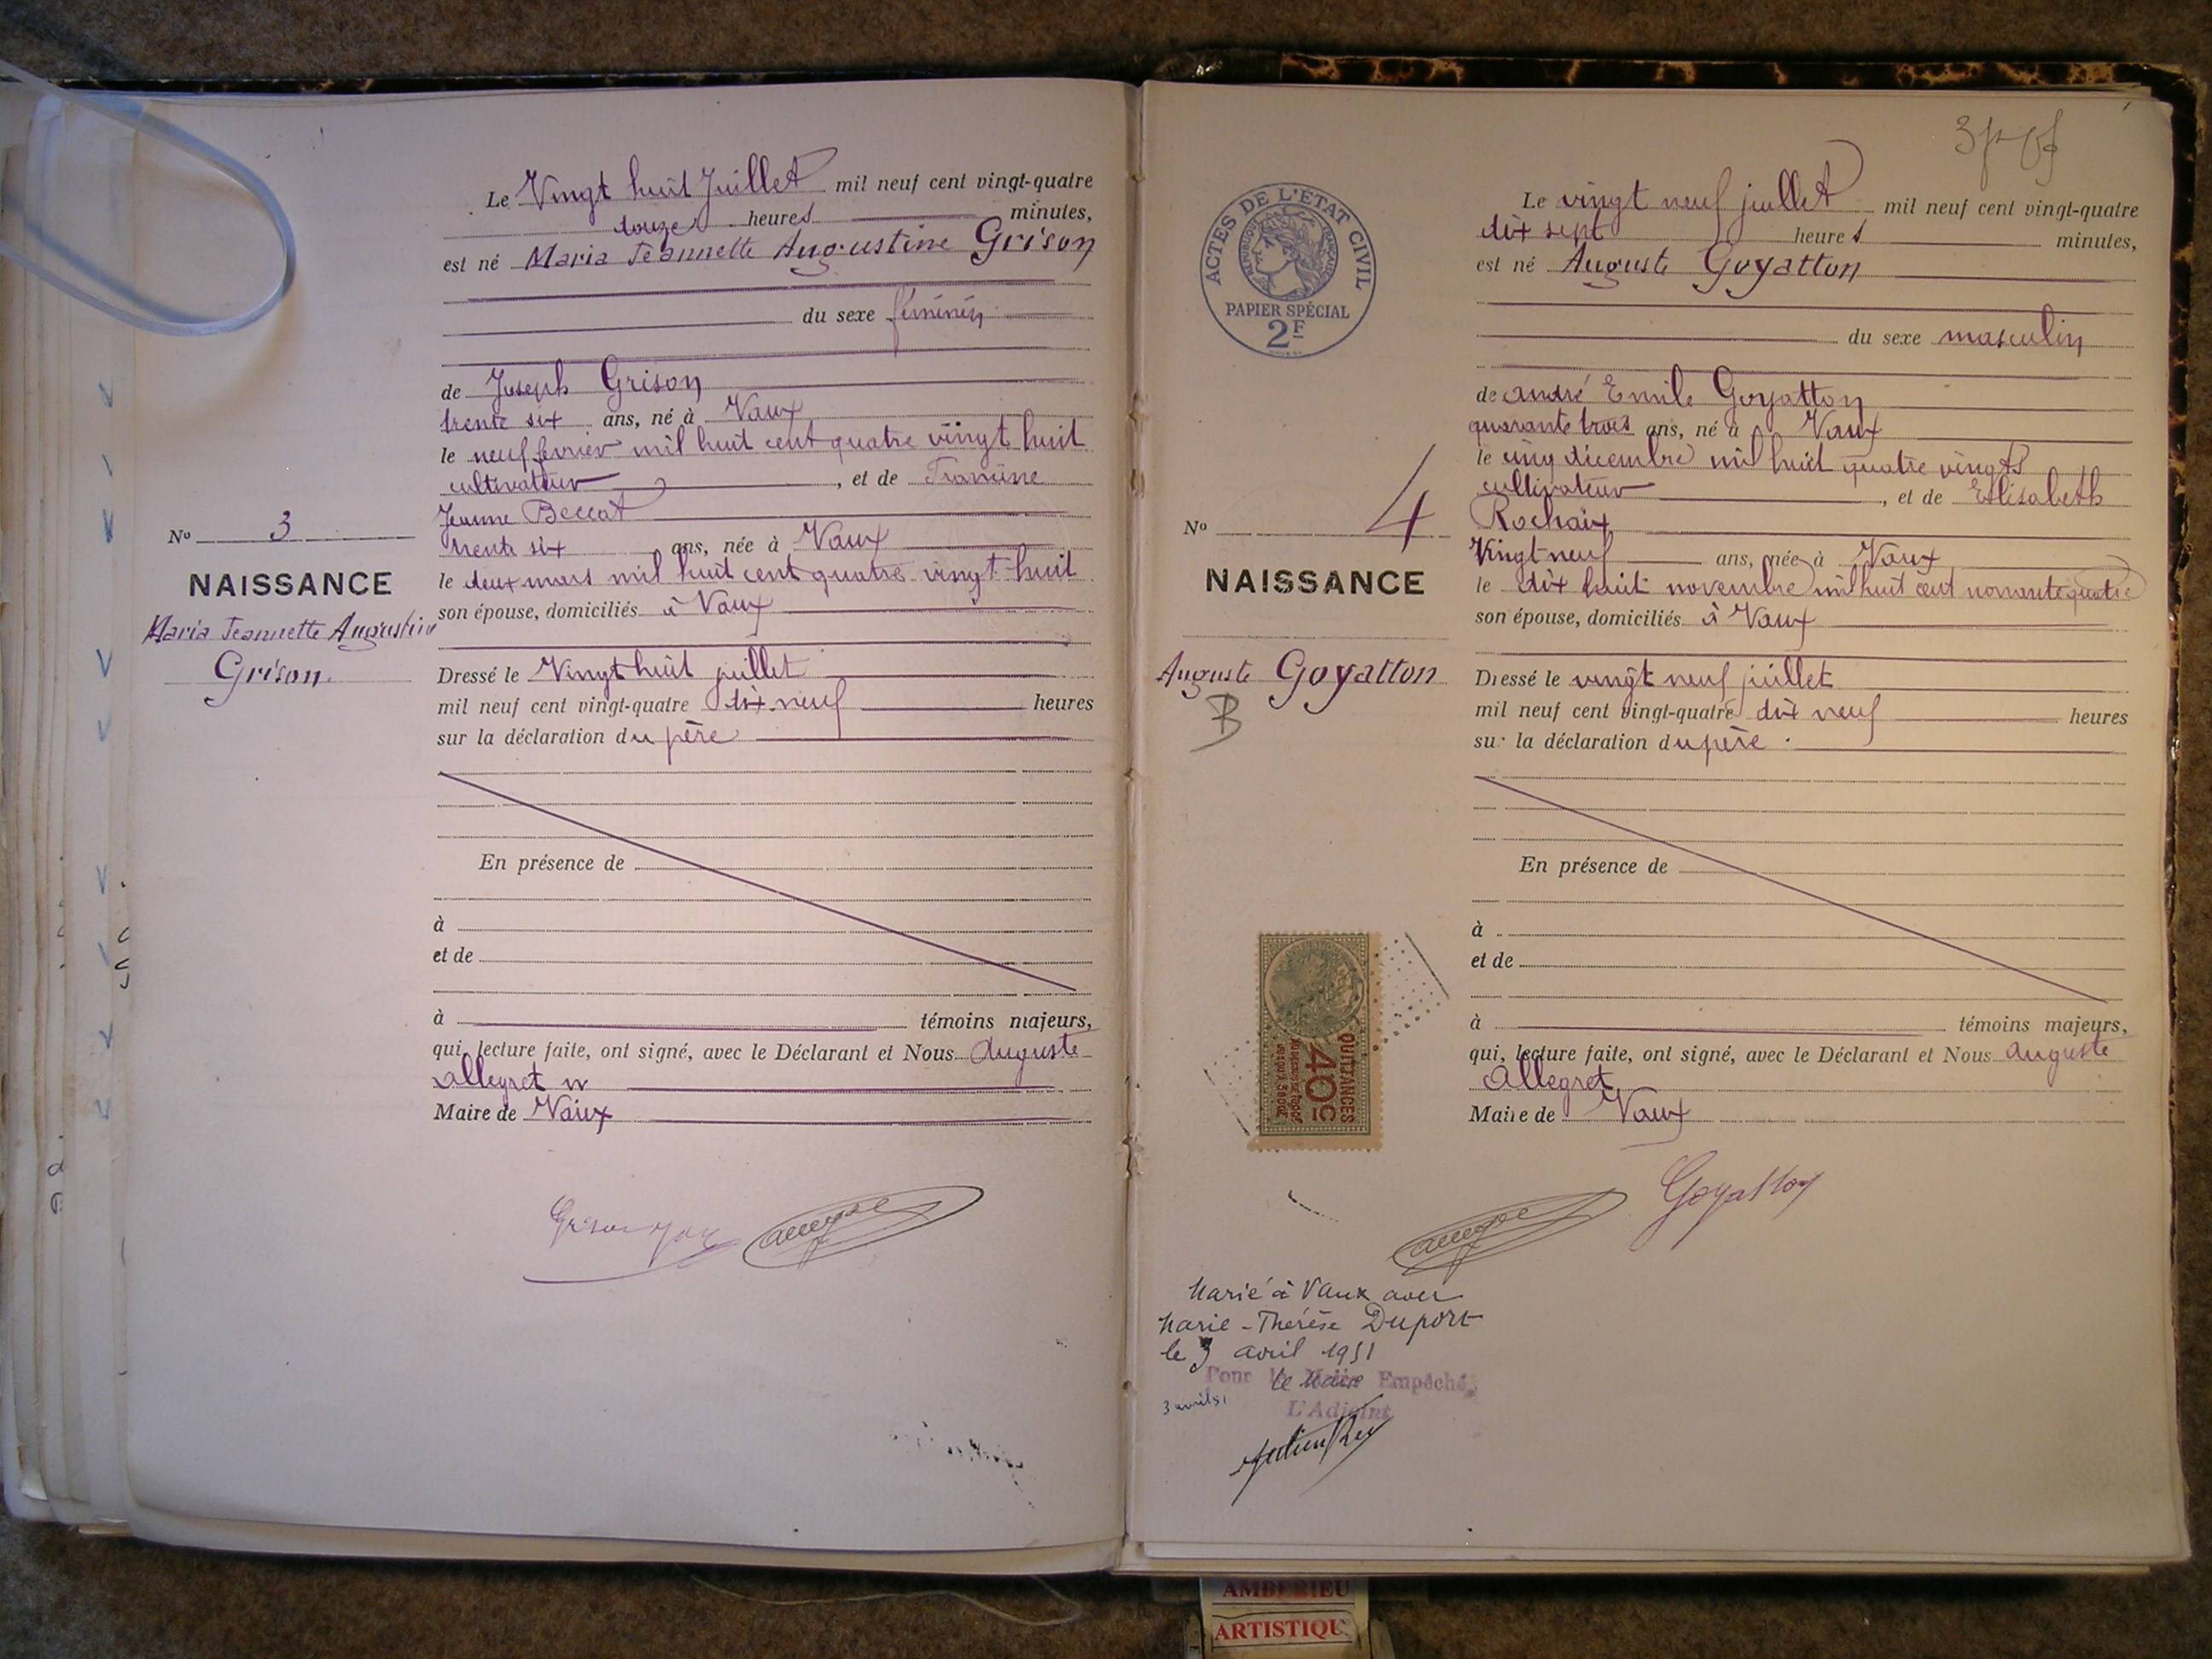 Le Vingt huit Juillet mil neuf cent vingt-quatre
douze heures minutes,
est né Maria Jeannette Augustine Grison
du sexe féminin
de Joseph Grison
trente six ans, né à Vaux
le neuf fevrier mil huit cent quatre vingt huit
cultivateur, et de Francine
Jeanne Beccat
trente six ans, née à Vaux
le deux mars mil huit cent quatre vingt huit
son épouse, domiciliés à Vaux
No 3
NAISSANCE
Maria Jeannette Augustine
Grison
Dressé le Vingt huit juillet
mil neuf cent vingt-quatre dix neuf heures
sur la déclaration du père
En présence de
à
et de
à témoins majeurs,
qui, lecture faite, ont signé, avec le Déclarant et Nous Auguste
Allegret
Maire de Vaux
ACTES DE L'ETAT CIVIL
REPUBLIQUE FRANÇAISE
PAPIER SPÉCIAL
2F
Le vingt neuf juillet mil neuf cent vingt-quatre
dix sept heures minutes,
est né Auguste Goyatton
du sexe masculin
de André Emile Goyatton
quarante trois ans, né à Vaux
le cinq décembre mil huit quatre vingts
cultivateur, et de Elisabeth
Rochaix
Vingt neuf ans, née à Vaux
le dix huit novembre mil huit cent nonante quatre
son épouse, domiciliés à Vaux
No 4
NAISSANCE
Auguste Goyatton
B
Dressé le vingt neuf juillet
mil neuf cent vingt-quatre dix neuf heures
sur la déclaration du père
En présence de
à
et de
à témoins majeurs,
qui, lecture faite, ont signé, avec le Déclarant et Nous Auguste
Allegret
Maire de Vaux
QUITTANCES
40c
Goyatton
Marié à Vaux avec
Marie-Thérèse Duport
le 3 avril 1951
Le Maire
Pour le Maire Empêché
3 avril 51
L'Adjoint
AMBERIEU
ARTISTIQU